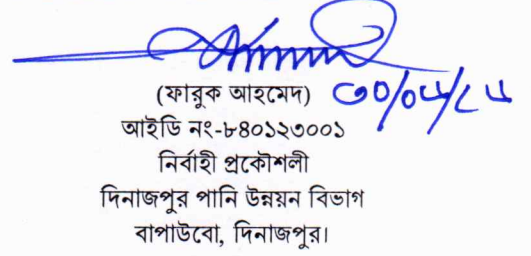 (ফারুক আহমেদ)
আইডি নং-৮৪০১২৩০০১
নির্বাহী প্রকৌশলী
দিনাজপুর পানি উন্নয়ন বিভাগ
বাপাউবো, দিনাজপুর।